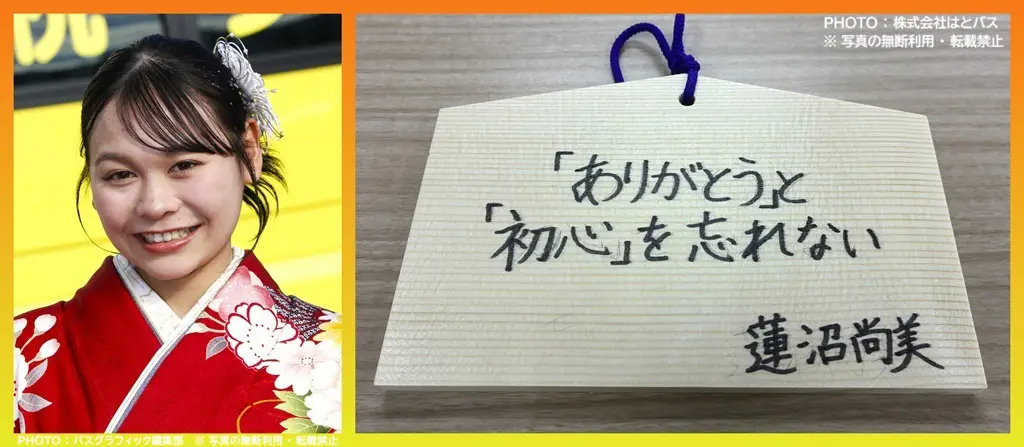 PHOTO：株式会社はとバス
※ 写真の無断利用・転載禁止
「ありがとう」と
「初心」を忘れない
蓮沼尚美
PHOTO：バスグラフィック編集部　※ 写真の無断利用・転載禁止